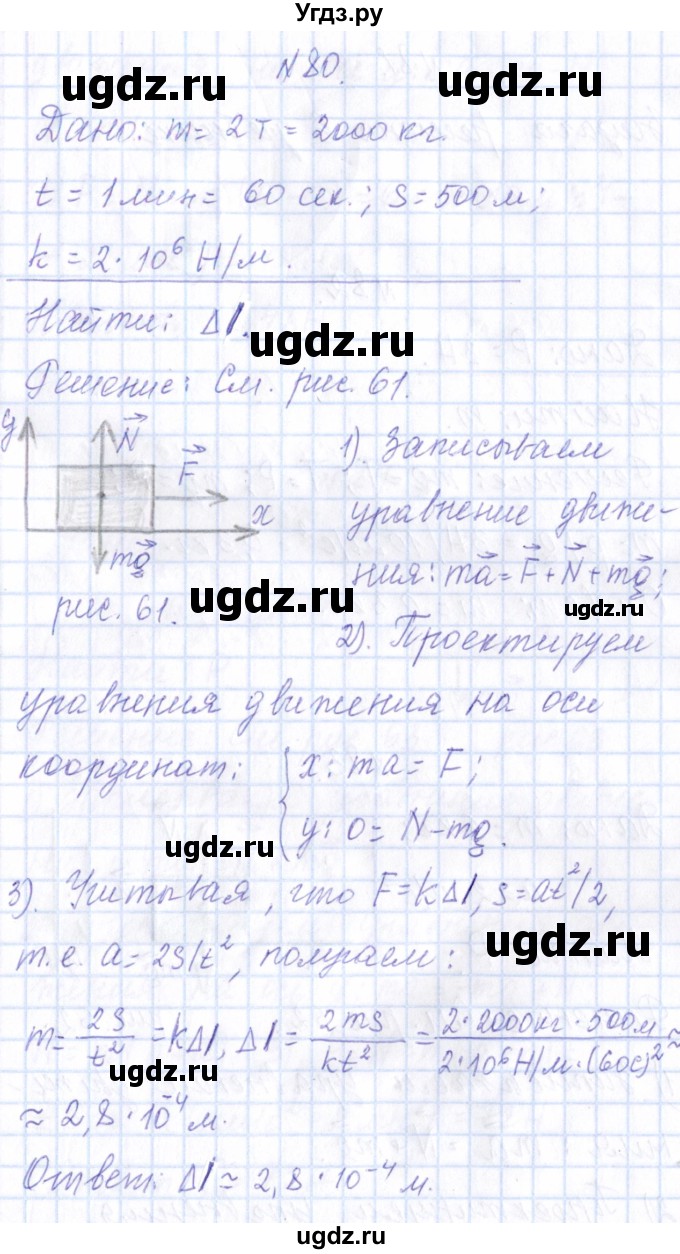 Угдз.ру
№80.
ugdz.ru ugdz.ru
Дано: m = 2 т = 2000 кг.
t = 1 мин = 60 сек.; S = 500 м;
k = 2·10⁶ Н/м.
Найти: Δl.
ugdz.ru
Решение: См. рис. 61.
y N⃗ F⃗ x mg⃗
рис. 61.
1). Записываем
уравнение движе-
ния: ma⃗ = F⃗ + N⃗ + mg⃗;
ugdz.ru ugdz.ru
2). Проектируем
уравнения движения на оси
координат: { x: ma = F;
y: 0 = N - mg.
ugdz.ru
3). Учитывая, что F = kΔl, s = at²/2,
ugdz.ru
т.е. a = 2S/t², получаем:
m = 2S/t² = kΔl, Δl = 2mS/kt² = 2·2000кг·500м/2·10⁶Н/м·(60с)² ≈
ugdz.ru
≈ 2,8·10⁻⁴ м.
Ответ: Δl ≈ 2,8·10⁻⁴ м.
ugdz.ru